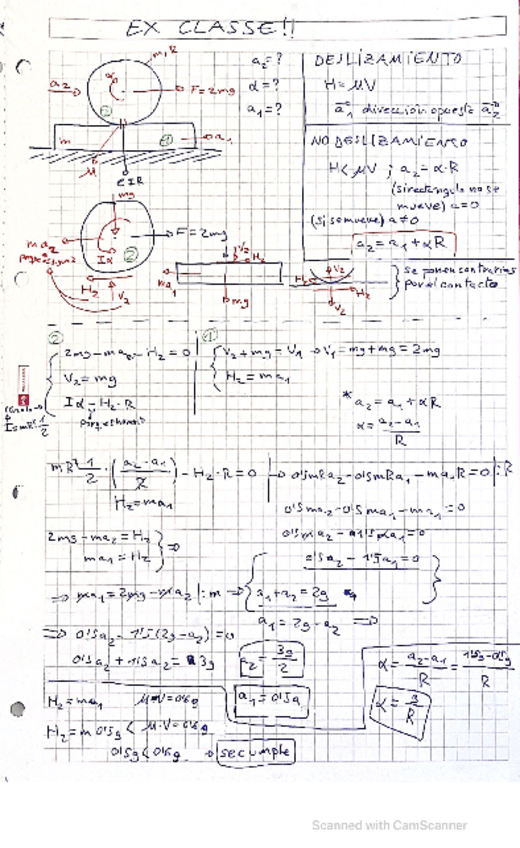 EX CLASSE!!
m, R
a₂ = ?
α = ?
a₁ = ?
a₂
F = 2mg
m
a₁
μ
CIR
DESLIZAMIENTO
H = μV
a₁ dirección opuesta a₂
NO DESLIZAMIENTO
H < μV ; a₂ = α·R
(si rectángulo no se
mueve) a = 0
(si se mueve) a ≠ 0
a₂ = a₁ + αR
mg
F = 2mg
ma₂
Iα
②
H₂
V₂
V₂
H₂
ma₁
mg
H₂
V₂
H₂
V₂
se ponen contrarias
por el contacto
②
2mg - ma₂ - H₂ = 0
V₂ = mg
Iα - H₂·R
①
V₂ + mg = V₁ → V₁ = mg + mg = 2mg
H₂ = ma₁
* a₂ = a₁ + αR
α = (a₂ - a₁)/R
mR² 1/2 · ((a₂ - a₁)/R) - H₂·R = 0 → 0'5mRa₂ - 0'5mRa₁ - ma₁R = 0 |:R
H₂ = ma₁
0'5ma₂ - 0'5ma₁ - ma₁ = 0
2mg - ma₂ = H₂
ma₁ = H₂ ⇒
0'5a₂ - 1'5a₁ = 0
⇒ ma₁ = 2mg - ma₂ |:m ⇒ a₁ + a₂ = 2g
a₁ = 2g - a₂ ⇒
⇒ 0'5a₂ - 1'5(2g - a₂) = 0
0'5a₂ + 1'5a₂ = 3g
a₂ = 3g/2
a₁ = 0'5g
α = (a₂ - a₁)/R = (1'5g - 0'5g)/R
α = g/R
H₂ = ma₁
μ·V = 0'6g
H₂ = m 0'5g < μ·V = 0'6g
0'5g < 0'6g → se cumple
Scanned with CamScanner